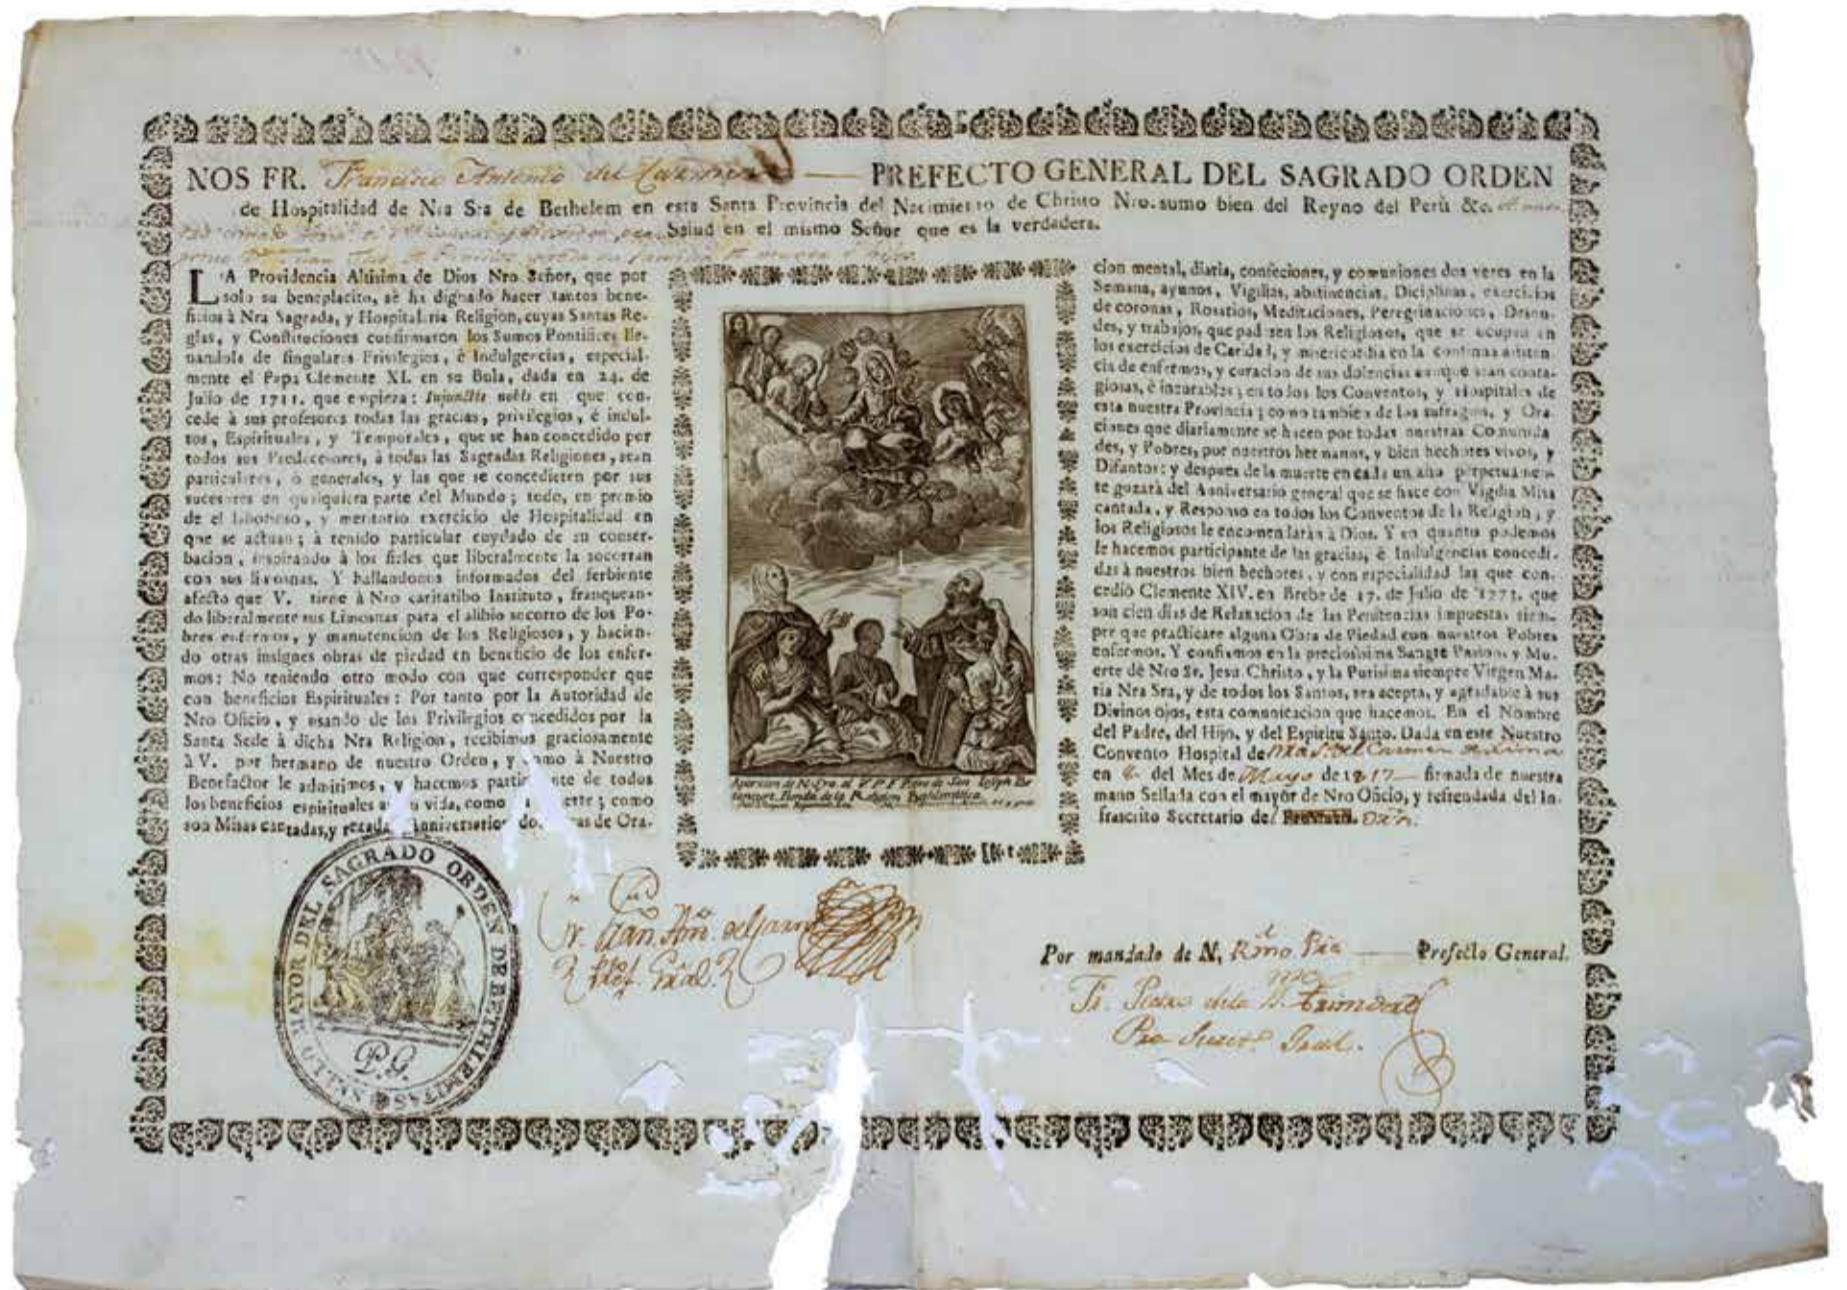 NOS FR. Francisco Antonio del Carmen — PREFECTO GENERAL DEL SAGRADO ORDEN
de Hospitalidad de Nra Sra de Bethelem en esta Santa Provincia del Nacimiento de Christo Nro. sumo bien del Reyno del Perù &c.
Salud en el mismo Señor que es la verdadera.
LA Providencia Altisima de Dios Nro Señor, que por
solo su beneplacito, se ha dignado hacer tantos bene-
ficios à Nra Sagrada, y Hospitalaria Religion, cuyas Santas Re-
glas, y Constituciones confirmaron los Sumos Pontifices lle-
nandola de singulares Privilegios, è Indulgencias, especial-
mente el Papa Clemente XI. en su Bula, dada en 24. de
Julio de 1711. que empieza: Injunctis nobis en que con-
cede à sus profesores todas las gracias, privilegios, è indul-
tos, Espirituales, y Temporales, que se han concedido por
todos sus Predecesores, à todas las Sagradas Religiones, sean
particulares, ò generales, y las que se concedieren por sus
sucesores en qualquiera parte del Mundo; todo, en premio
de el laborioso, y meritorio exercicio de Hospitalidad en
que se actuan; à tenido particular cuydado de su conser-
bacion, inspirando à los fieles que liberalmente la socorran
con sus limosnas. Y hallandonos informados del ferbiente
afecto que V. tiene à Nro caritatibo Instituto, franquean-
do liberalmente sus Limosnas para el alibio socorro de los Po-
bres enfermos, y manutencion de los Religiosos, y hacien-
do otras insignes obras de piedad en beneficio de los enfer-
mos: No teniendo otro modo con que corresponder que
con beneficios Espirituales: Por tanto por la Autoridad de
Nro Oficio, y usando de los Privilegios concedidos por la
Santa Sede à dicha Nra Religion, recibimos graciosamente
à V. por hermano de nuestro Orden, y como à Nuestro
Benefactor le admitimos, y hacemos participante de todos
los beneficios espirituales vida, como ; como
son Misas cantadas, y rezadas Anniversarios de Ora-
Aparicion de N. Sra. al V. P. F. Pedro de San Joseph Be-
tancourt. Funda. de la Religion Bethlemitica
cion mental, diaria, confeciones, y comuniones dos veces en la
Semana, ayunos, Vigilias, abstinencias, Diciplinas, exercicios
de coronas, Rosarios, Meditaciones, Peregrinaciones, Desnu-
des, y trabajos, que padesen los Religiosos, que se ocupan en
los exercicios de Caridad, y misericordia en la continua asisten
cia de enfermos, y curacion de sus dolencias aunque sean conta-
giosas, è incurables; en todos los Conventos, y Hospitales de
esta nuestra Provincia; como tambien de los sufragios, y Ora-
ciones que diariamente se hacen por todas nuestras Comunida
des, y Pobres, por nuestros hermanos, y bien hechores vivos, y
Difuntos; y despues de la muerte en cada un año perpetuamen-
te gozarà del Anniversario general que se hace con Vigilia Misa
cantada, y Responso en todos los Conventos de la Religion, y
los Religiosos le encomendaràn à Dios. Y en quanto podemos
le hacemos participante de las gracias, è Indulgencias concedi-
das à nuestros bien hechores, y con especialidad las que con-
cediò Clemente XIV. en Brebe de 17. de Julio de 1773. que
son cien dias de Relaxacion de las Penitencias impuestas siem-
pre que practicare alguna Obra de Piedad con nuestros Pobres
enfermos. Y confiamos en la preciosisima Sangre Pasion, y Mu-
erte de Nro Sr. Jesu Christo, y la Purisima siempre Virgen Ma-
ria Nra Sra, y de todos los Santos, sea acepta, y agradable à sus
Divinos ojos, esta comunicacion que hacemos. En el Nombre
del Padre, del Hijo, y del Espiritu Santo. Dada en este Nuestro
Convento Hospital de Nra Sa. del Carmen de Lima
en del Mes de Mayo de 1817 firmada de nuestra
mano Sellada con el mayor de Nro Oficio, y refrendada del In-
frascrito Secretario de
SELLO MAYOR DEL SAGRADO ORDEN DE BETHLEMITAS
P.G.
Fr. Fran. Anto. del Carmen
Pref. Gral.
Por mandado de N. Rmo Pre — Prefecto General.
Fr. Pedro de la Sma. Trinidad
Pro Secret. Gral.